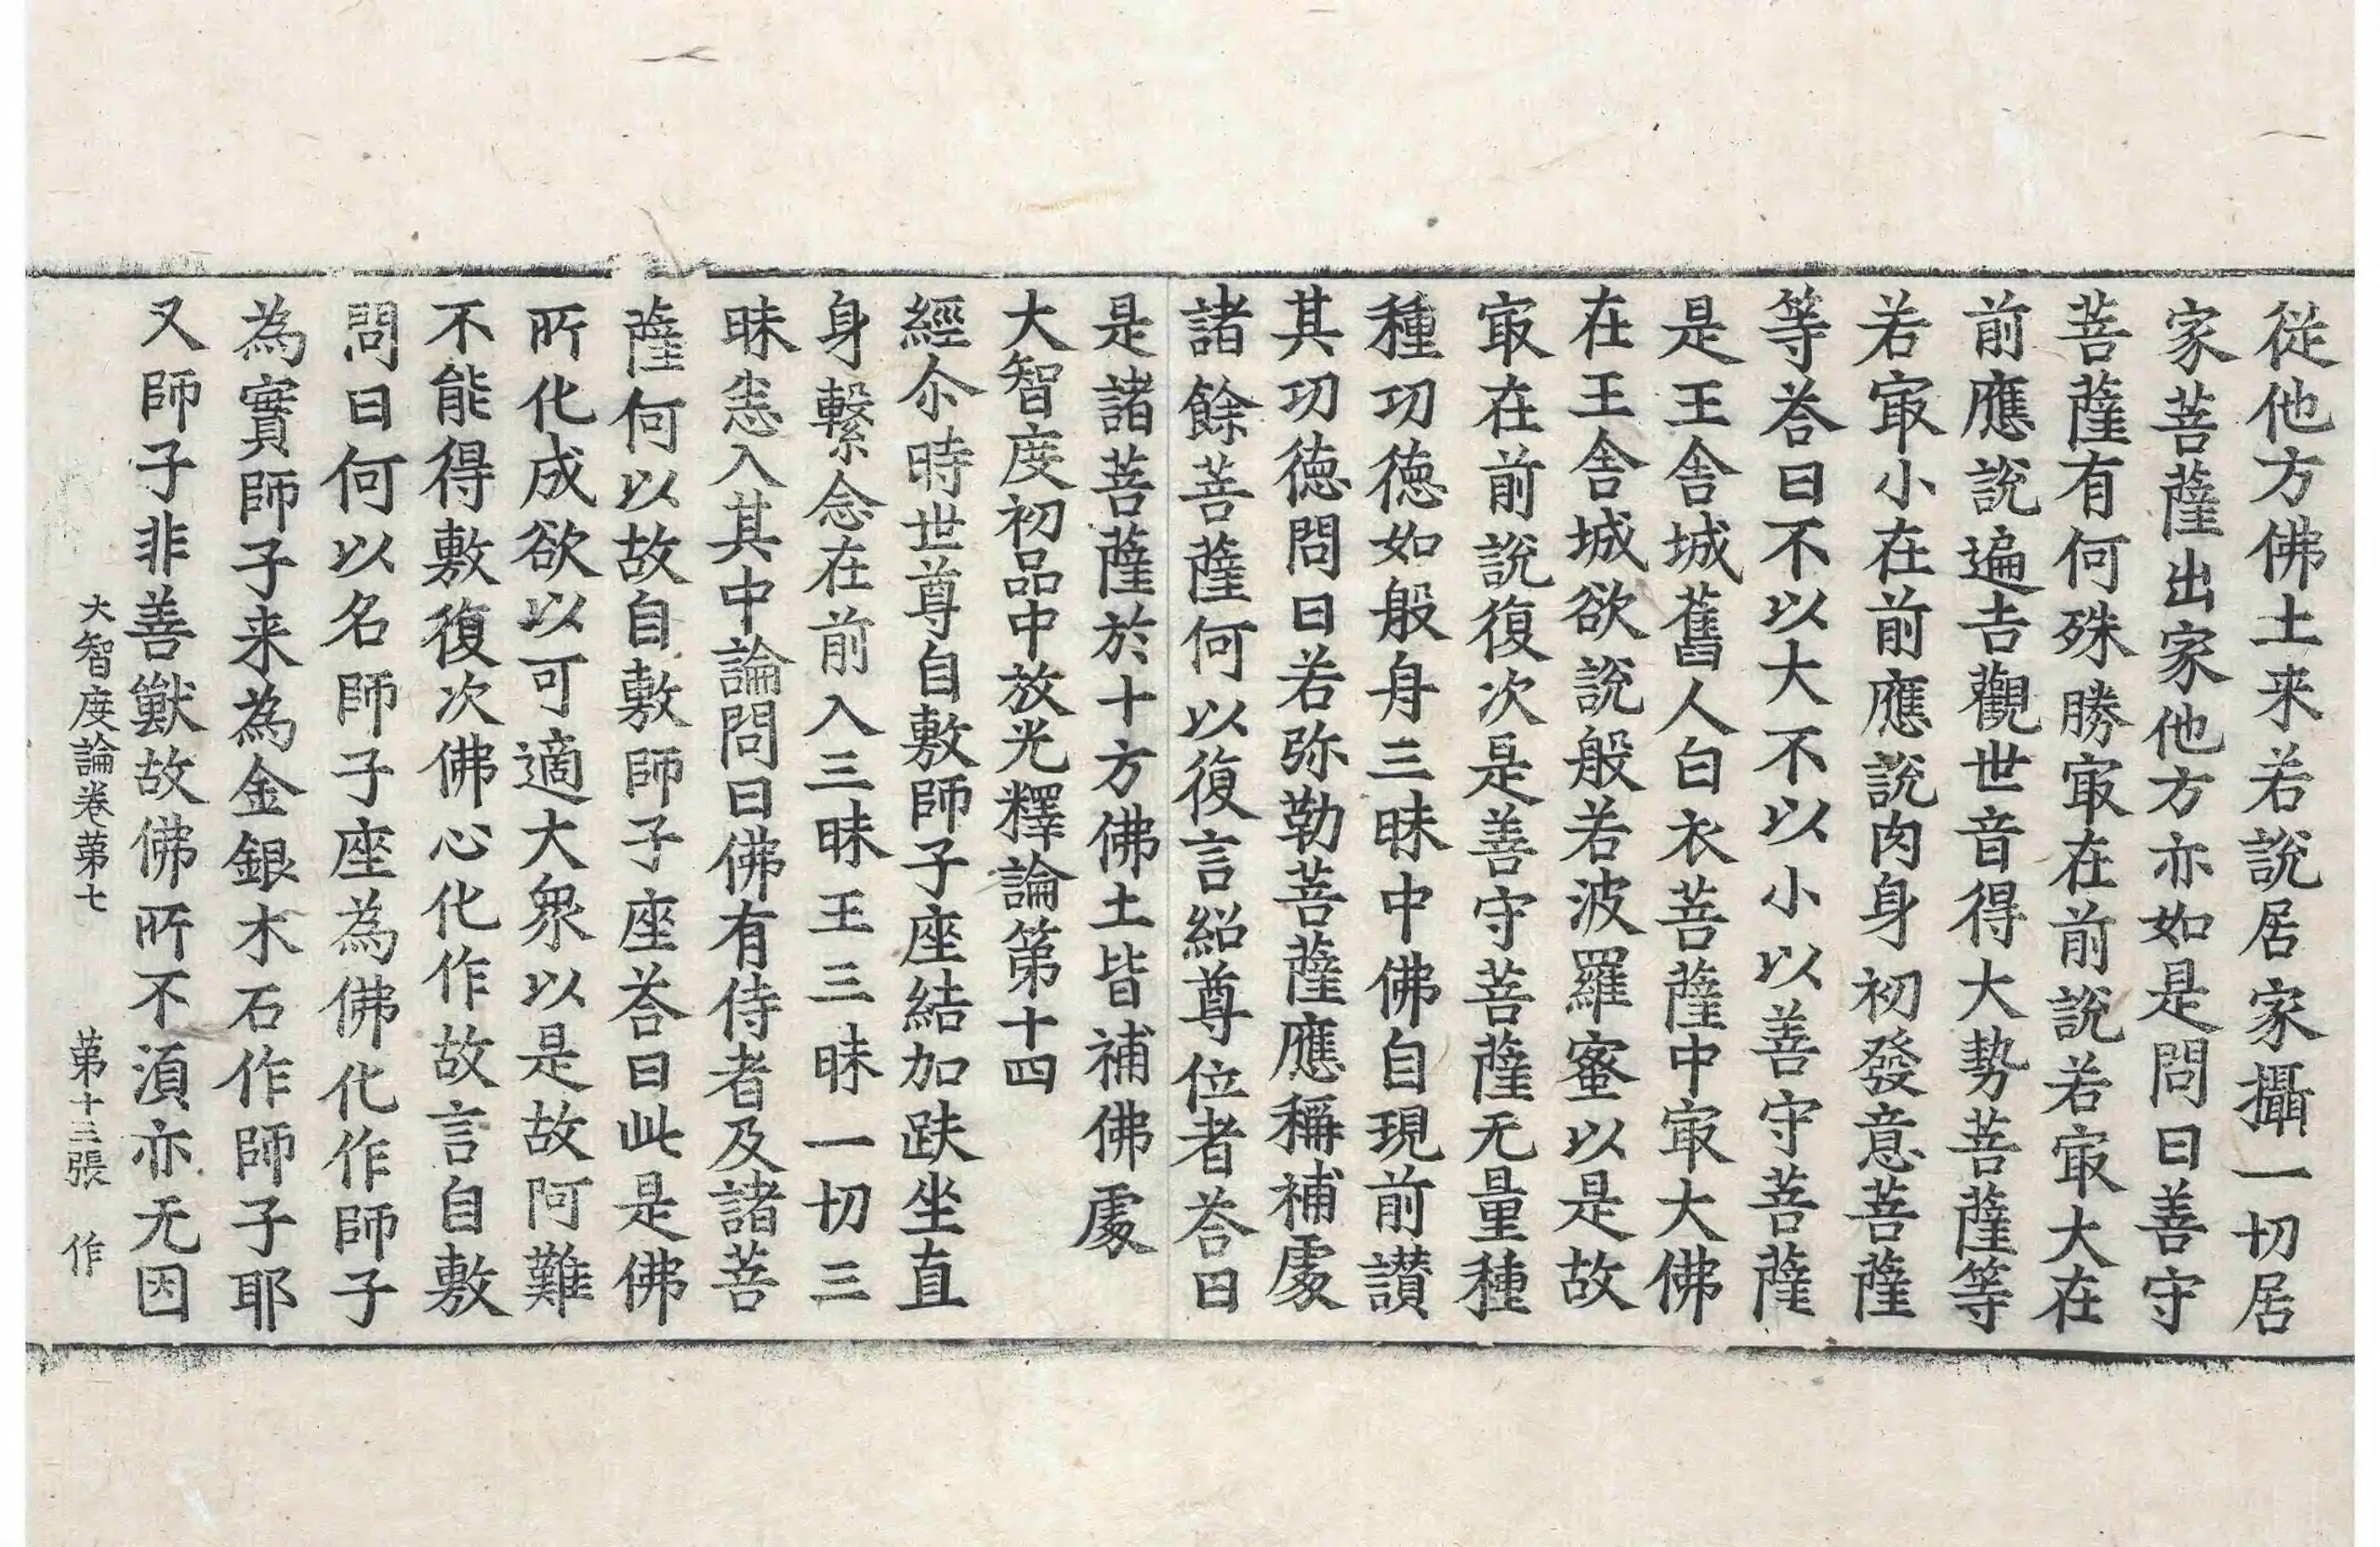 從他方佛土来若說居家攝一切居
家菩薩出家他方亦如是問曰善守
菩薩有何殊勝㝡在前說若㝡大在
前應說遍吉觀世音得大勢菩薩等
若㝡小在前應說肉身初發意菩薩
等荅曰不以大不以小以善守菩薩
是王舍城舊人白衣菩薩中㝡大佛
在王舍城欲說般若波羅蜜以是故
㝡在前說復次是善守菩薩无量種
種功徳如般舟三昧中佛自現前讃
其功徳問曰若弥勒菩薩應稱補䖏
諸餘菩薩何以復言紹尊位者荅曰
是諸菩薩於十方佛土皆補佛䖏
大智度初品中放光釋論第十四
經尒時世尊自敷師子座結加趺坐直
身繫念在前入三昧王三昧一切三
昧悉入其中論問曰佛有侍者及諸菩
薩何以故自敷師子座荅曰此是佛
所化成欲以可適大衆以是故阿難
不能得敷復次佛心化作故言自敷
問曰何以名師子座為佛化作師子
為實師子来為金銀木石作師子耶
又師子非善獸故佛所不湏亦无因
大智度論卷第七 第十三張 作